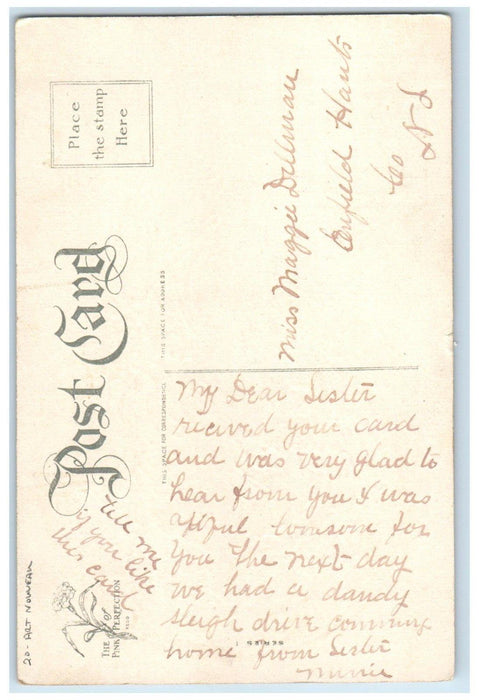 Place
the stamp
Here
Post Card
THIS SPACE FOR ADDRESS
THIS SPACE FOR CORRESPONDENCE
Miss Maggie Dillman
Enfield Hants
Co
N S
My Dear Sister
recived your card
and was very glad to
hear from you I was
lonsom for
you the next day
we had a dandy
sleigh drive comming
home from Sister
Minnie
tell me
if you like
this card
THE
PINK PERFECTION
SERIES
20 - ART NOUVEAU